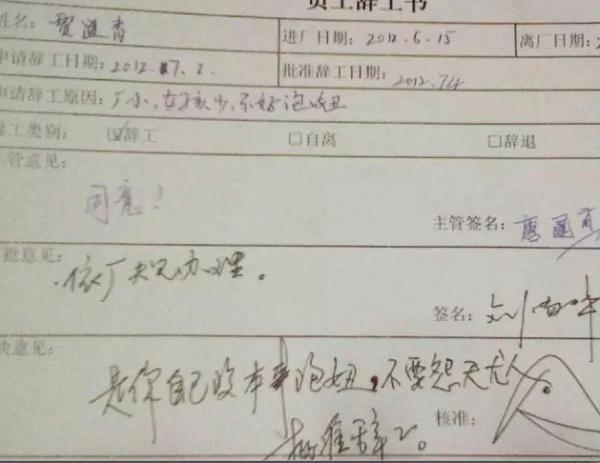 员工辞工书
姓名： 贾 进厂日期：2012.6.15 离厂日期：
申请辞工日期：2012.7.2. 批准辞工日期：2012.7.4
申请辞工原因：厂小，女孩少，不好泡妞
辞工类别： ☑辞工 □自离 □辞退
主管意见：
同意！
主管签名：
审批意见：
依厂规办理。
签名：刘
决意见：
是你自己没本事泡妞，不要怨天尤人
核准：
批准辞工。